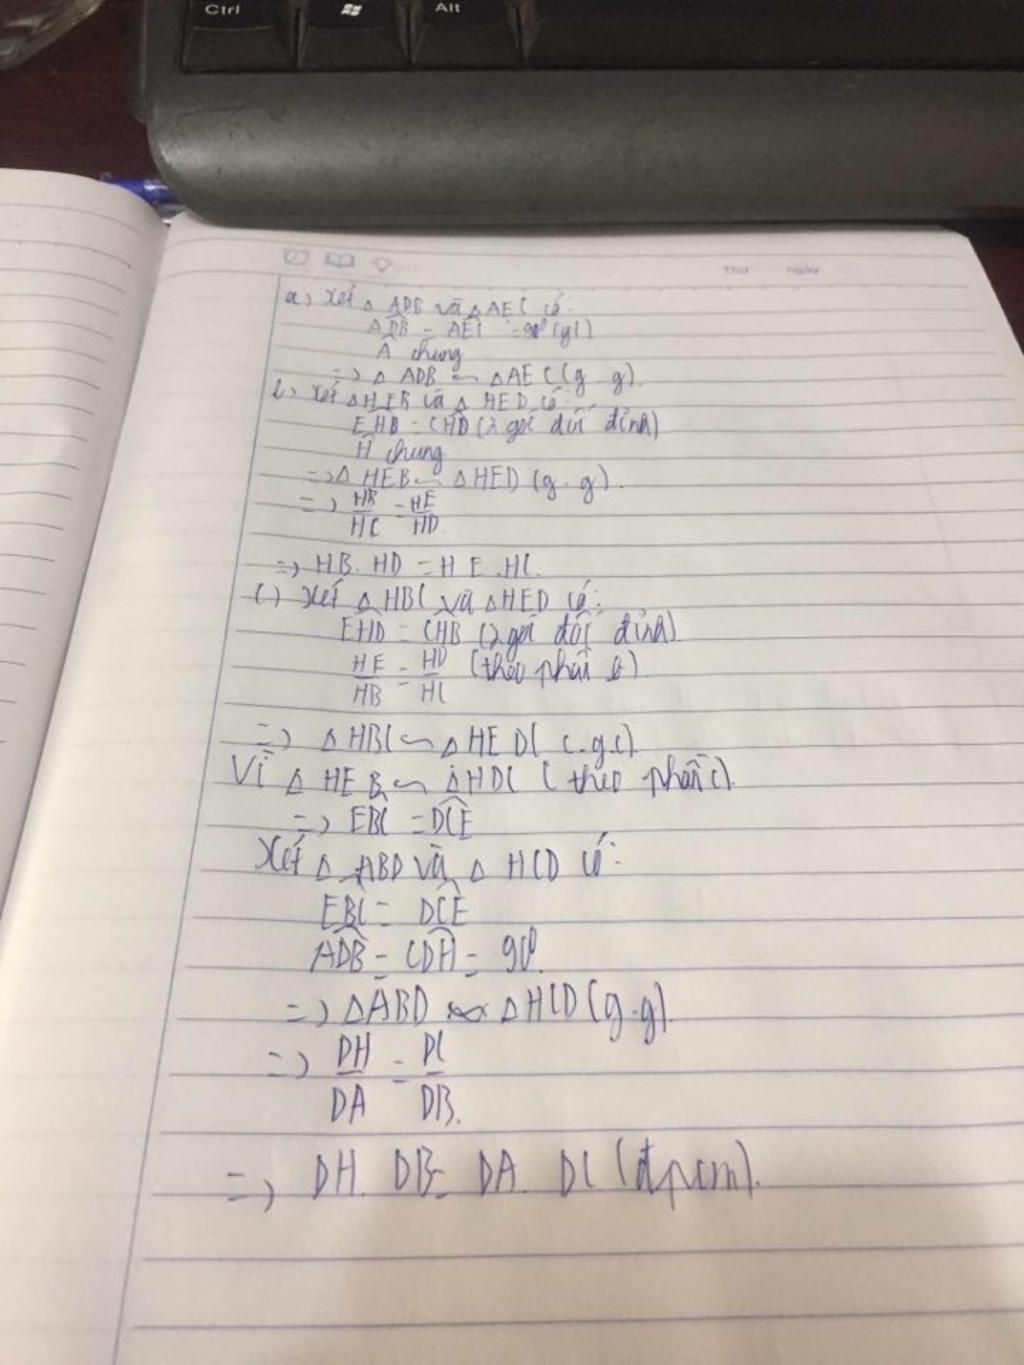 Ctrl
Alt
Thứ ngày
a, Xét △ ADB và △AEC có:
ADB = AEC = 90° (gt)
Â chung
=> △ ADB ∽ △AEC (g-g).
b, Xét △HEB và △ HED có:
EHB = CHD (2 góc đối đỉnh)
Ĥ chung
=> △ HEB ∽ △HED (g.g).
=> HB/HC = HE/HD
=> HB. HD = HE .HC.
c) Xét △ HBC và △HED có:
EHD = CHB (2 góc đối đỉnh).
HE/HB = HD/HC (theo phần b)
=> △ HBC ∽ △HED (c.g.c).
Vì △ HEB ∽ △HDC (theo phần c).
=> EBC = DCE
Xét △ ABD và △ HCD có:
EBC = DCE
ADB = CDH = 90°.
=> △ABD ∽ △HCD (g.g).
=> DH/DA = DC/DB.
=> DH. DB = DA. DC (đpcm).